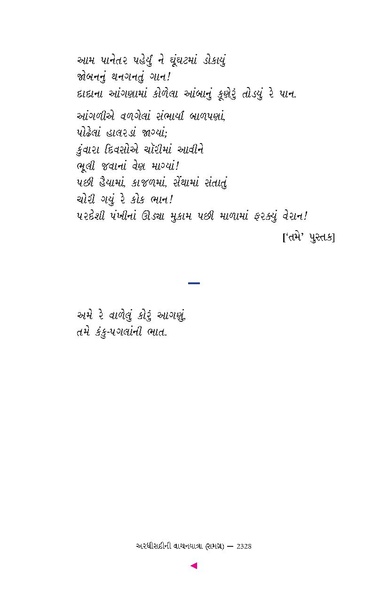 આમ પાનેતર પહેર્યું ને ઘૂંઘટમાં ડોકાયું
જોબનનું થનગનતું ગાન!
દાદાના આંગણામાં કોળેલા આંબાનું કૂણેરું તોડ્યું રે પાન.
આંગળીએ વળગેલાં સંભાર્યાં બાળપણાં,
પોઢેલાં હાલરડાં જાગ્યાં;
કુંવારા દિવસોએ ચૉરીમાં આવીને
ભૂલી જવાનાં વેણ માગ્યાં!
પછી હૈયામાં, કાજળમાં, સેંથામાં સંતાતું
ચોરી ગયું રે કોક ભાન!
પરદેશી પંખીનાં ઊડ્યા મુકામ પછી માળામાં ફરક્યું વેરાન!
['તમે' પુસ્તક]
અમે રે વાળેલું કોરું આગણું,
તમે કંકુ-પગલાંની ભાત.
અરધીસદીની વાચનયાત્રા (સમગ્ર) — 2328